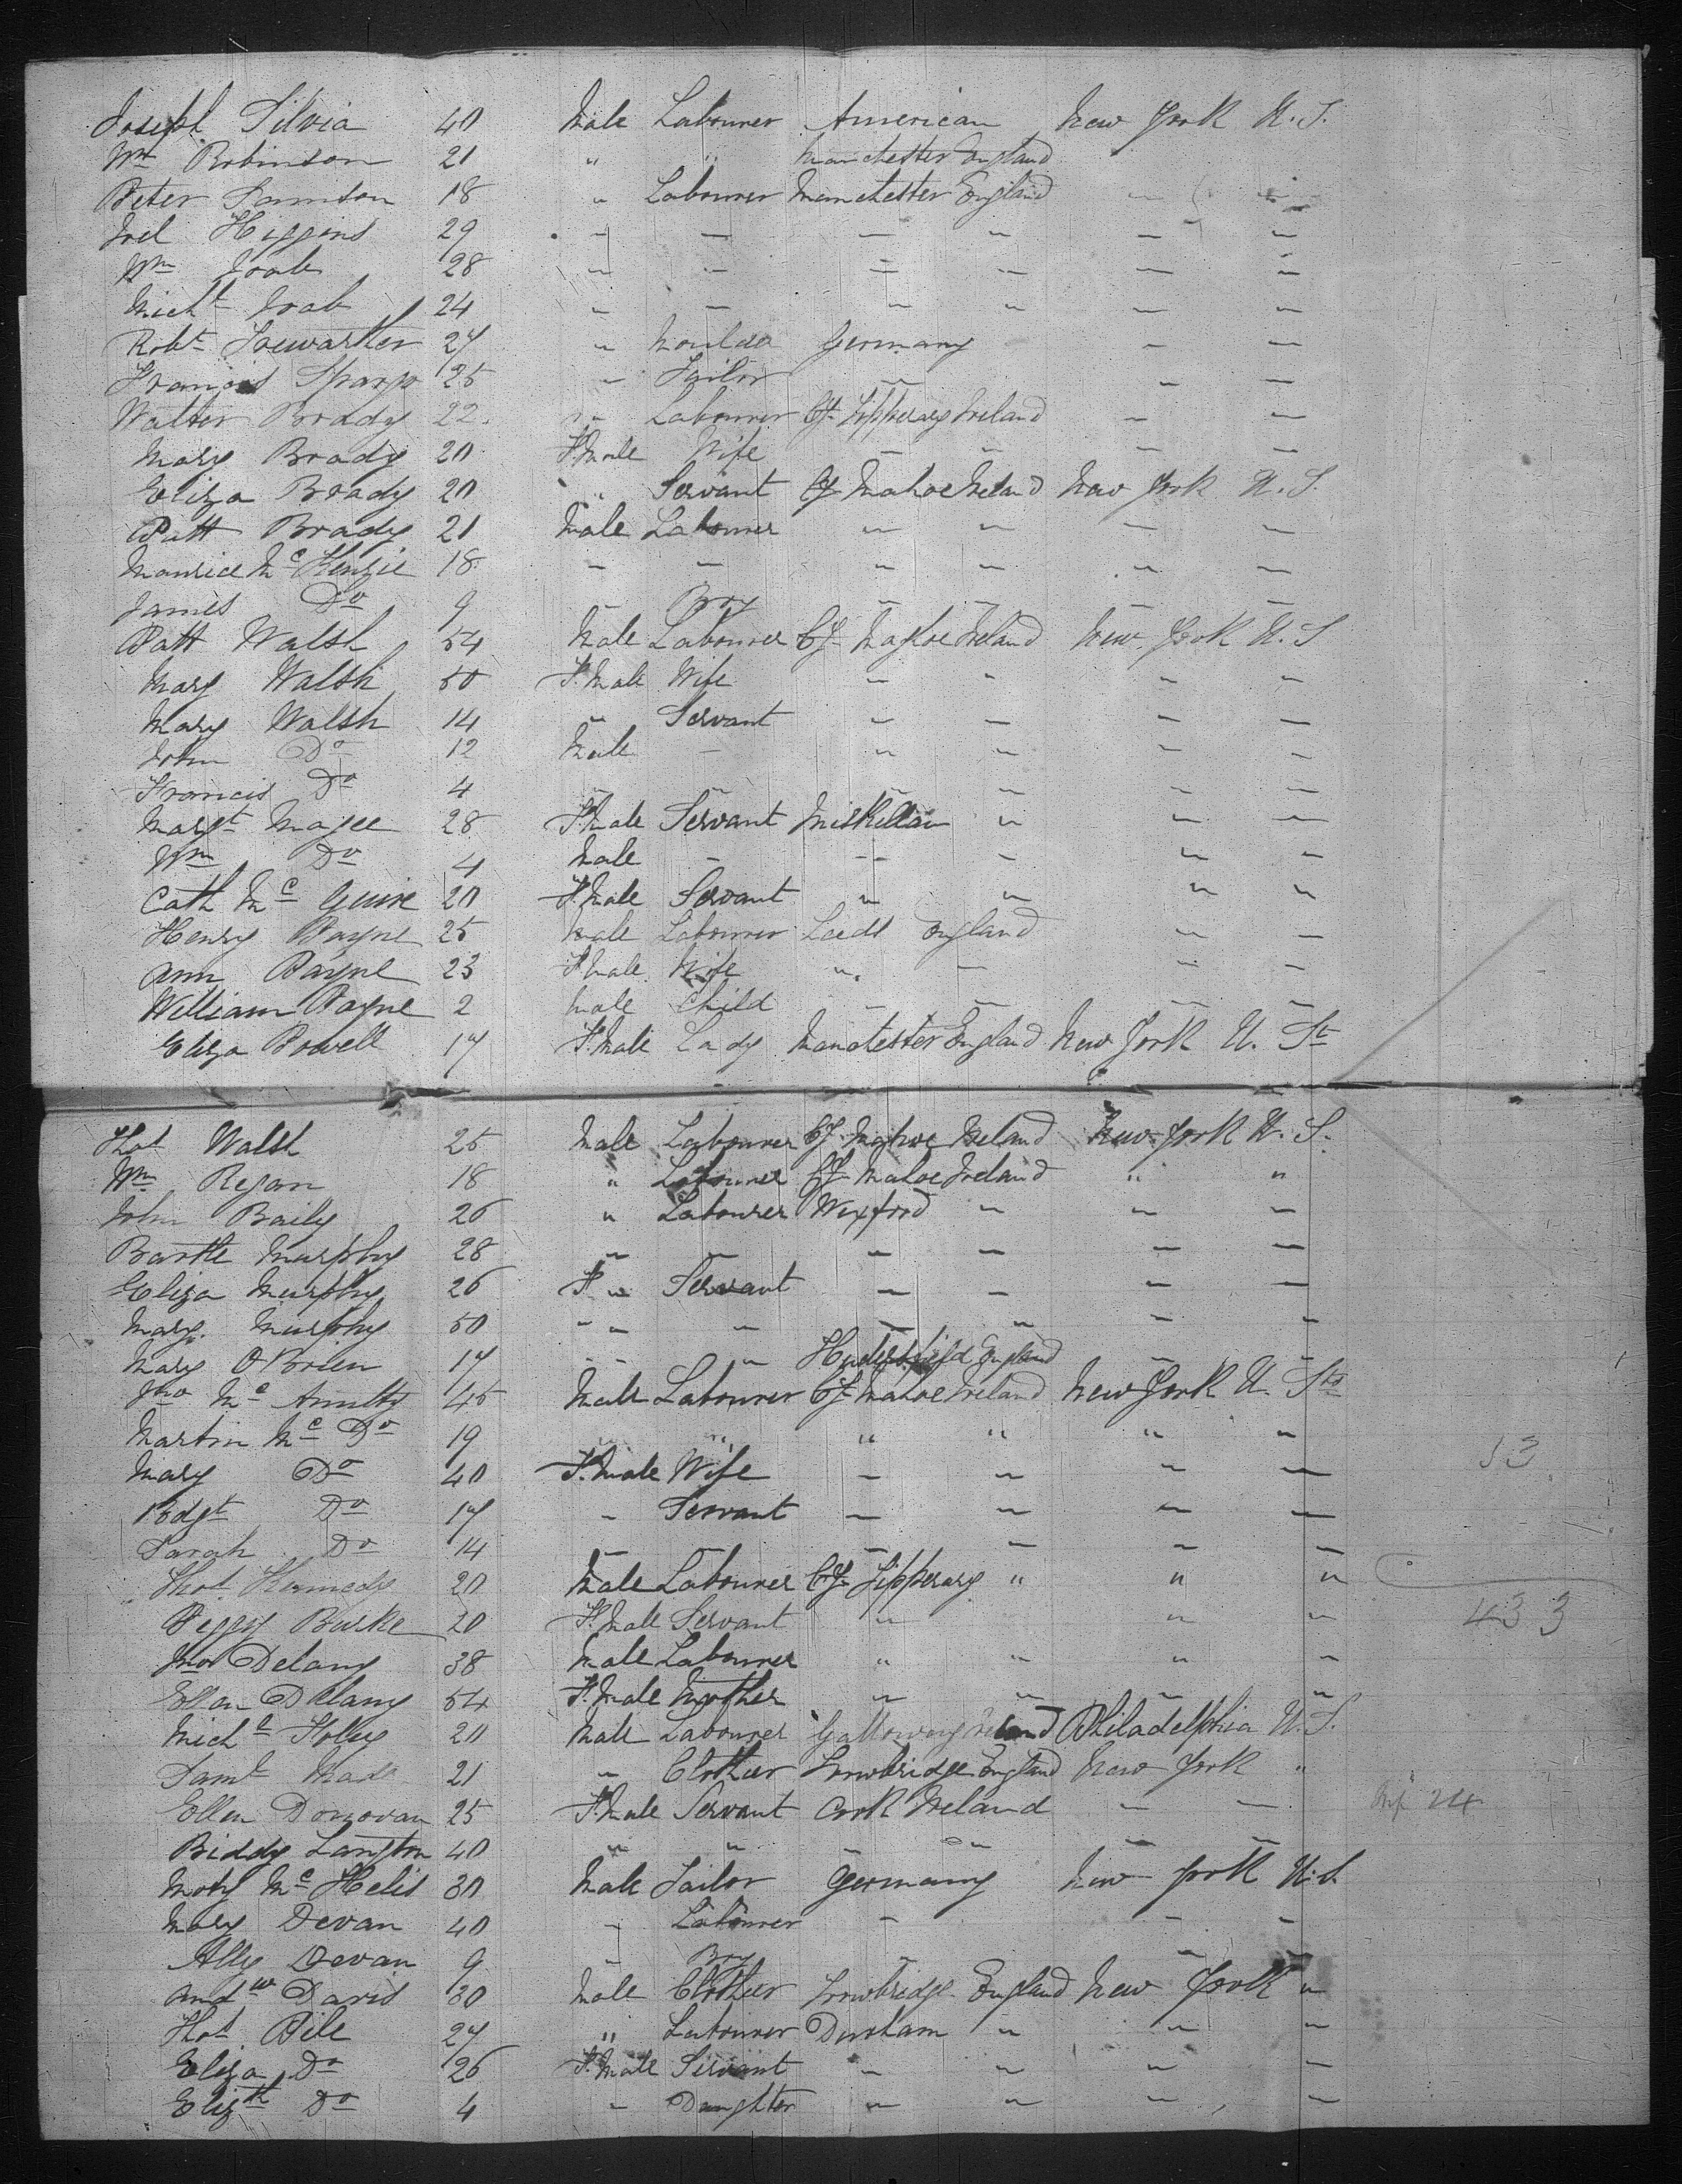 Joseph Silvia 40 Male Labourer American New York U.S.
Wm Robinson 21 " " Manchester England
Peter Samson 18 " Labourer Manchester England " "
Joel Higgins 29 " " " " " "
Wm 28 " " " " " "
Michl 24 " " " " " "
Robt 27 " Moulder Germany " "
Francis 25 " Tailor " " "
Walter Brady 22 " Labourer Cy Tipperary Ireland " "
Mary Brady 20 F.Male Wife " " " "
Eliza Brady 20 " Servant Cy Mahoe Ireland New York U.S.
Patt Brady 21 Male Labourer " " " "
Maurice Mc Kenzie 18 " " " " " "
James Do 9 " Boy " " " "
Patt Walsh 54 Male Labourer Cy Mahoe Ireland New York U.S
Mary Walsh 50 F.Male Wife " " " "
Mary Walsh 14 " Servant " " " "
John Do 12 Male " " " " "
Francis Do 4 " " " " " "
Margt Magee 28 F.Male Servant " " "
Wm Do 4 Male " " " " "
Cath Mc Guire 20 F.Male Servant " " " "
Henry Payne 25 Male Labourer Leeds England " "
Ann Payne 23 F.Male Wife " " " "
William Payne 2 Male Child " " " "
Eliza Powell 17 F.Male Lady Manchester England New York U. St
Thos Walsh 25 Male Labourer Cy Mahoe Ireland New York U.S.
Wm Regan 18 " Labourer Cy Mahoe Ireland " "
John Baily 26 " Labourer Wexford " " "
Bartle Murphy 28 " " " " " "
Eliza Murphy 26 F. " Servant " " " "
Mary Murphy 50 " " " " " " "
Mary O'Brien 17 " " " England " "
Jno Mc Anulty 45 Male Labourer Cy Mahoe Ireland New York U. Sts
Martin Mc Do 19 " " " " " "
13
Mary Do 40 F.Male Wife " " " "
Bdgt Do 17 " Servant " " " "
Sarah Do 14 " " " " " "
Thos Kennedy 20 Male Labourer Cy Tipperary " " "
Peggy Burke 20 F.Male Servant " " "
433
Jno Delany 38 Male Labourer " " " "
Ellen Delany 54 F.Male Mother " " " "
Michl Foley 20 Male Labourer Galloway Ireland Philadelphia U.S.
Saml Wade 21 " Clothier Trowbridge England New York "
Ellen Donovan 25 F.Male Servant Cork Ireland " "
24
Biddy Langton 40 " " " " " "
Mc Helis 30 Male Tailor Germany New York U.S.
Mary Devan 40 " Labourer " " "
Ally Devan 9 " Boy " " "
Andw Davis 30 Male Clothier Trowbridge England New York "
Thos Pile 27 " Labourer Durham " " "
Eliza Do 26 F.Male Servant " " " "
Elizth Do 4 " Daughter " " " "